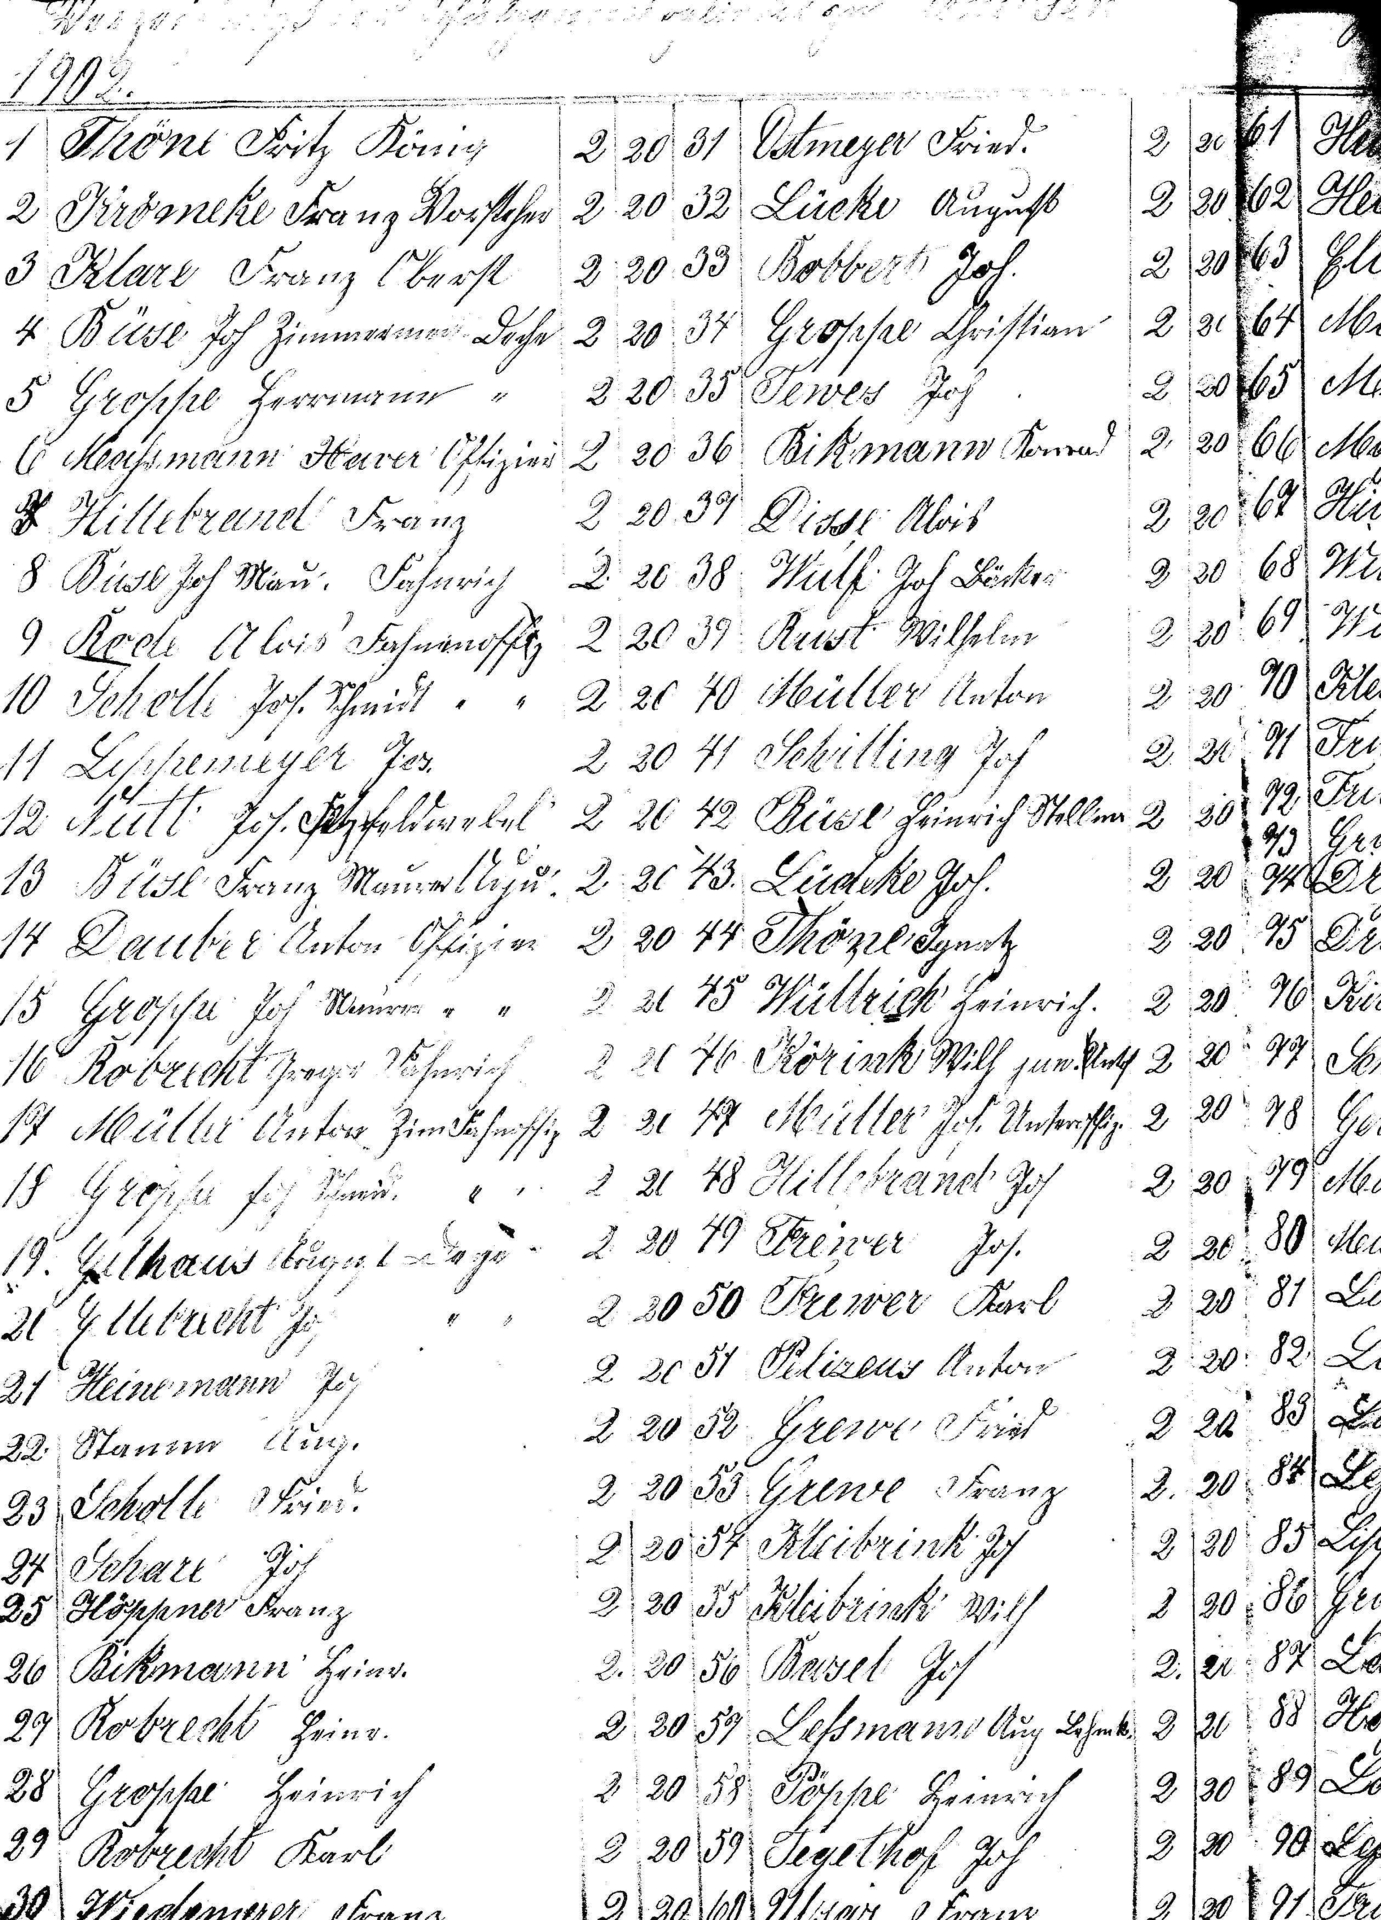 1902.
1 Thöne Fritz König 2 20
2 Krömeke Franz Vorsteher 2 20
3 Klare Franz Oberst 2 20
4 Büse Joh Zimmerman Deche 2 20
5 Groppe Herrmann " 2 20
6 Massmann Xaver Offizier 2 20
7 Hillebrand Franz 2 20
8 Büse Joh Mau. Fähnrich 2 20
9 Rode Alois Fahnenoffiz 2 20
10 Scholle Jos. Schmidt " " 2 20
11 Lippemeyer Jos. 2 20
12 Nutt Jos. Feldwebel 2 20
13 Büse Franz Maurer 2 20
14 Dauber Anton Offizier 2 20
15 Groppe Joh Maurer " " 2 20
16 Robrecht Gregor Fähnrich 2 20
17 Müller Anton Zim Fahnoffiz 2 20
18 Groppe Joh " " 2 20
19. Gelhaus August 2 20
20 Ellebrecht Jos " " 2 20
21 Heinemann Jos 2 20
22 Stamm Aug. 2 20
23 Scholle Fried. 2 20
24 Schare Joh 2 20
25 Höppner Franz 2 20
26 Bikmann Heinr. 2. 20
27 Robrecht Heinr. 2 20
28 Groppe Heinrich 2 20
29 Robrecht Karl 2 20
30 Wiedemeyer Franz 2 20
31 Ostmeyer Fried. 2 20
32 Lücke August 2 20
33 Bobbert Joh. 2 20
34 Groppe Christian 2 20
35 Tewes Joh 2 20
36 Bikmann Konrad 2 20
37 Disse Alois 2 20
38 Wulf Joh Bäcker 2 20
39 Rust Wilhelm 2 20
40 Müller Anton 2 20
41 Schilling Joh 2 20
42 Büse Heinrich Stellm 2 20
43. Lüdeke Joh. 2 20
44 Thöne Ignatz 2 20
45 Wüllrich Heinrich. 2 20
46 Körink Wilh jun. 2 20
47 Müller Jos. Unteroffiz. 2 20
48 Hillebrand Jos 2 20
49 Frewer Jos. 2 20
50 Frewer Karl 2 20
51 Pelizeus Anton 2 20
52 Grewe Fried 2 20
53 Grewe Franz 2. 20
54 Kleibrink Jos 2 20
55 Kleibrink Wilh 2 20
56 Basel Jos 2. 20
57 Lessmann Aug 2 20
58 Pöppe Heinrich 2 20
59 Tegethof Joh 2 20
60 Franz 2 20
61
62
63
64
65
66
67
68
69
70
71
72
73
74
75
76
77
78
79
80
81
82
83
84
85
86
87
88
89
90
91